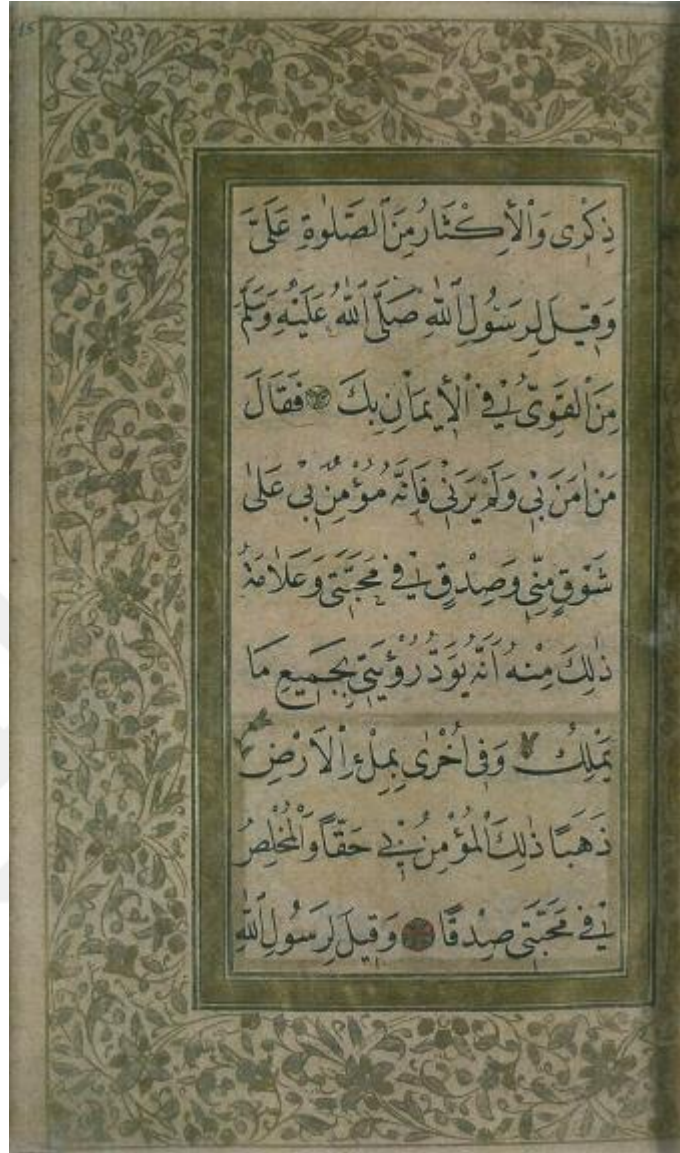 15
ذِكْرِى وَالْاِكْثَارُ مِنَ الصَّلٰوةِ عَلَىَّ
وَقِيلَ لِرَسُولِ اللّٰهِ صَلَّى اللّٰهُ عَلَيْهِ وَسَلَّمَ
مِنَ الْقَوِىُّ فِى الْاِيمَانِ بِكَ فَقَالَ
مَنْ اٰمَنَ بِى وَلَمْ يَرَنِى فَاِنَّهُ مُؤْمِنٌ بِى عَلٰى
شَوْقٍ مِنِّى وَصِدْقٍ فِى مَحَبَّتِى وَعَلَامَةُ
ذٰلِكَ مِنْهُ اَنَّهُ يَوَدُّ رُؤْيَتِى بِجَمِيعِ مَا
يَمْلِكُ وَفِى اُخْرٰى بِمِلْءِ الْاَرْضِ
ذَهَبًا ذٰلِكَ الْمُؤْمِنُ بِى حَقًّا وَالْمُخْلِصُ
فِى مَحَبَّتِى صِدْقًا وَقِيلَ لِرَسُولِ اللّٰهِ